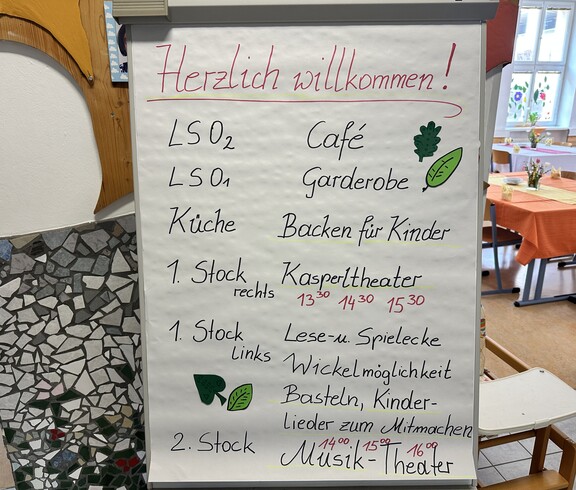 Herzlich willkommen!
LSO2 Café
LSO1 Garderobe
Küche Backen für Kinder
1. Stock rechts Kasperltheater
13³⁰ 14³⁰ 15³⁰
1. Stock links Lese-u. Spielecke
Wickelmöglichkeit
Basteln, Kinder-
lieder zum Mitmachen
14⁰⁰ 15⁰⁰ 16⁰⁰
2. Stock Musik-Theater